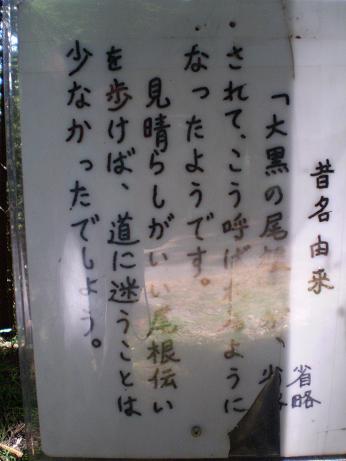 昔名由来
「大黒の尾
省略
されて、こう呼ばれるように
なったようです。
見晴らしがいい尾根伝い
を歩けば、道に迷うことは
少なかったでしょう。